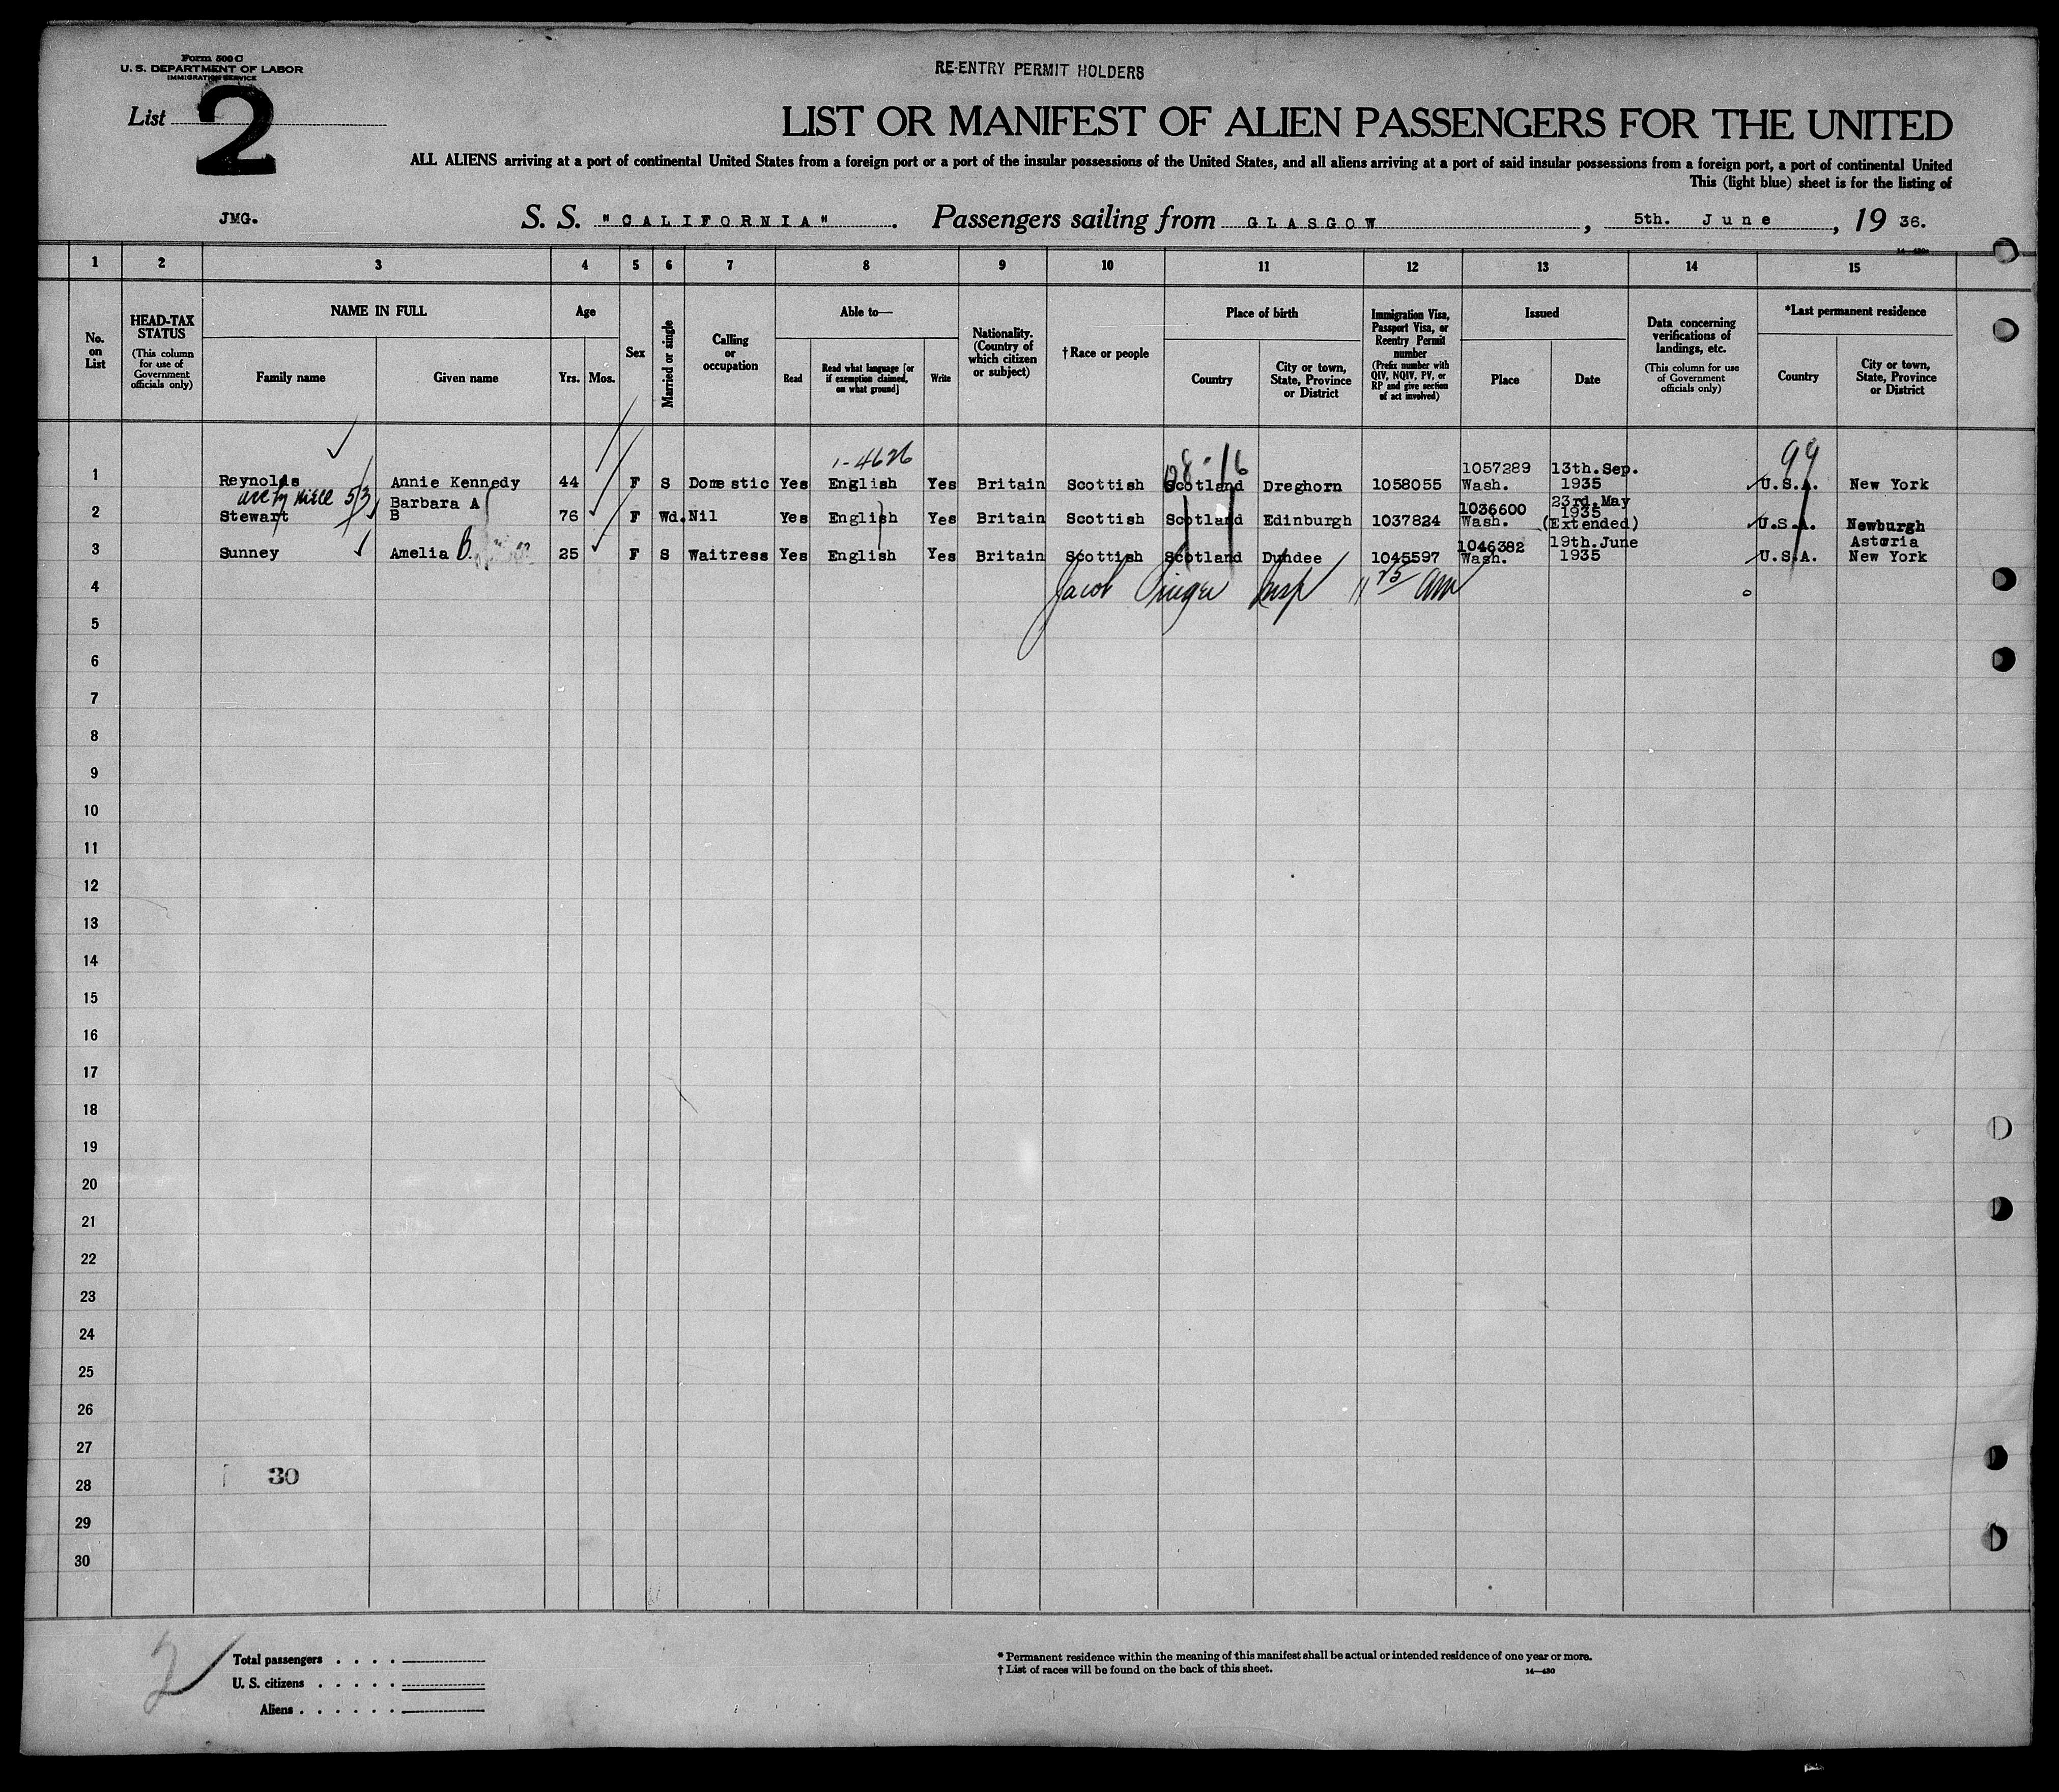 Form 500 C
U. S. DEPARTMENT OF LABOR
IMMIGRATION SERVICE
RE-ENTRY PERMIT HOLDERS
List 2
LIST OR MANIFEST OF ALIEN PASSENGERS FOR THE UNITED
ALL ALIENS arriving at a port of continental United States from a foreign port or a port of the insular possessions of the United States, and all aliens arriving at a port of said insular possessions from a foreign port, a port of continental United
This (light blue) sheet is for the listing of
JMG. S. S. "CALIFORNIA". Passengers sailing from GLASGOW, 5th. June, 19 36.
1 2 3 4 5 6 7 8 9 10 11 12 13 14 15
No. on List
HEAD-TAX STATUS
(This column for use of Government officials only)
NAME IN FULL
Family name Given name
Age
Yrs. Mos.
Sex
Married or single
Calling or occupation
Able to—
Read
Read what language [or if exemption claimed, on what ground]
Write
Nationality. (Country of which citizen or subject)
† Race or people
Place of birth
Country
City or town, State, Province or District
Immigration Visa, Passport Visa, or Reentry Permit number
(Prefix number with QIV, NQIV, PV, or RP and give section of act involved)
Issued
Place Date
Data concerning verifications of landings, etc.
(This column for use of Government officials only)
*Last permanent residence
Country
City or town, State, Province or District
1-4626 99
1057289 13th.Sep.
1 Reynolds Annie Kennedy 44 F S Domestic Yes English Yes Britain Scottish Scotland Dreghorn 1058055 Wash. 1935 U.S.A. New York
5/3 Barbara A 1036600 23rd.May 1935
2 Stewart B 76 F Wd. Nil Yes English Yes Britain Scottish Scotland Edinburgh 1037824 Wash. (Extended) U.S.A. Newburgh
1046382 19th.June Astoria
3 Sunney Amelia B. 25 F S Waitress Yes English Yes Britain Scottish Scotland Dundee 1045597 Wash. 1935 U.S.A. New York
4 Jacob Insp 11 25 am
5
6
7
8
9
10
11
12
13
14
15
16
17
18
19
20
21
22
23
24
25
26
27
28 30
29
30
2
Total passengers . . . .
U. S. citizens . . . . .
Aliens . . . . . .
* Permanent residence within the meaning of this manifest shall be actual or intended residence of one year or more.
† List of races will be found on the back of this sheet. 14—430